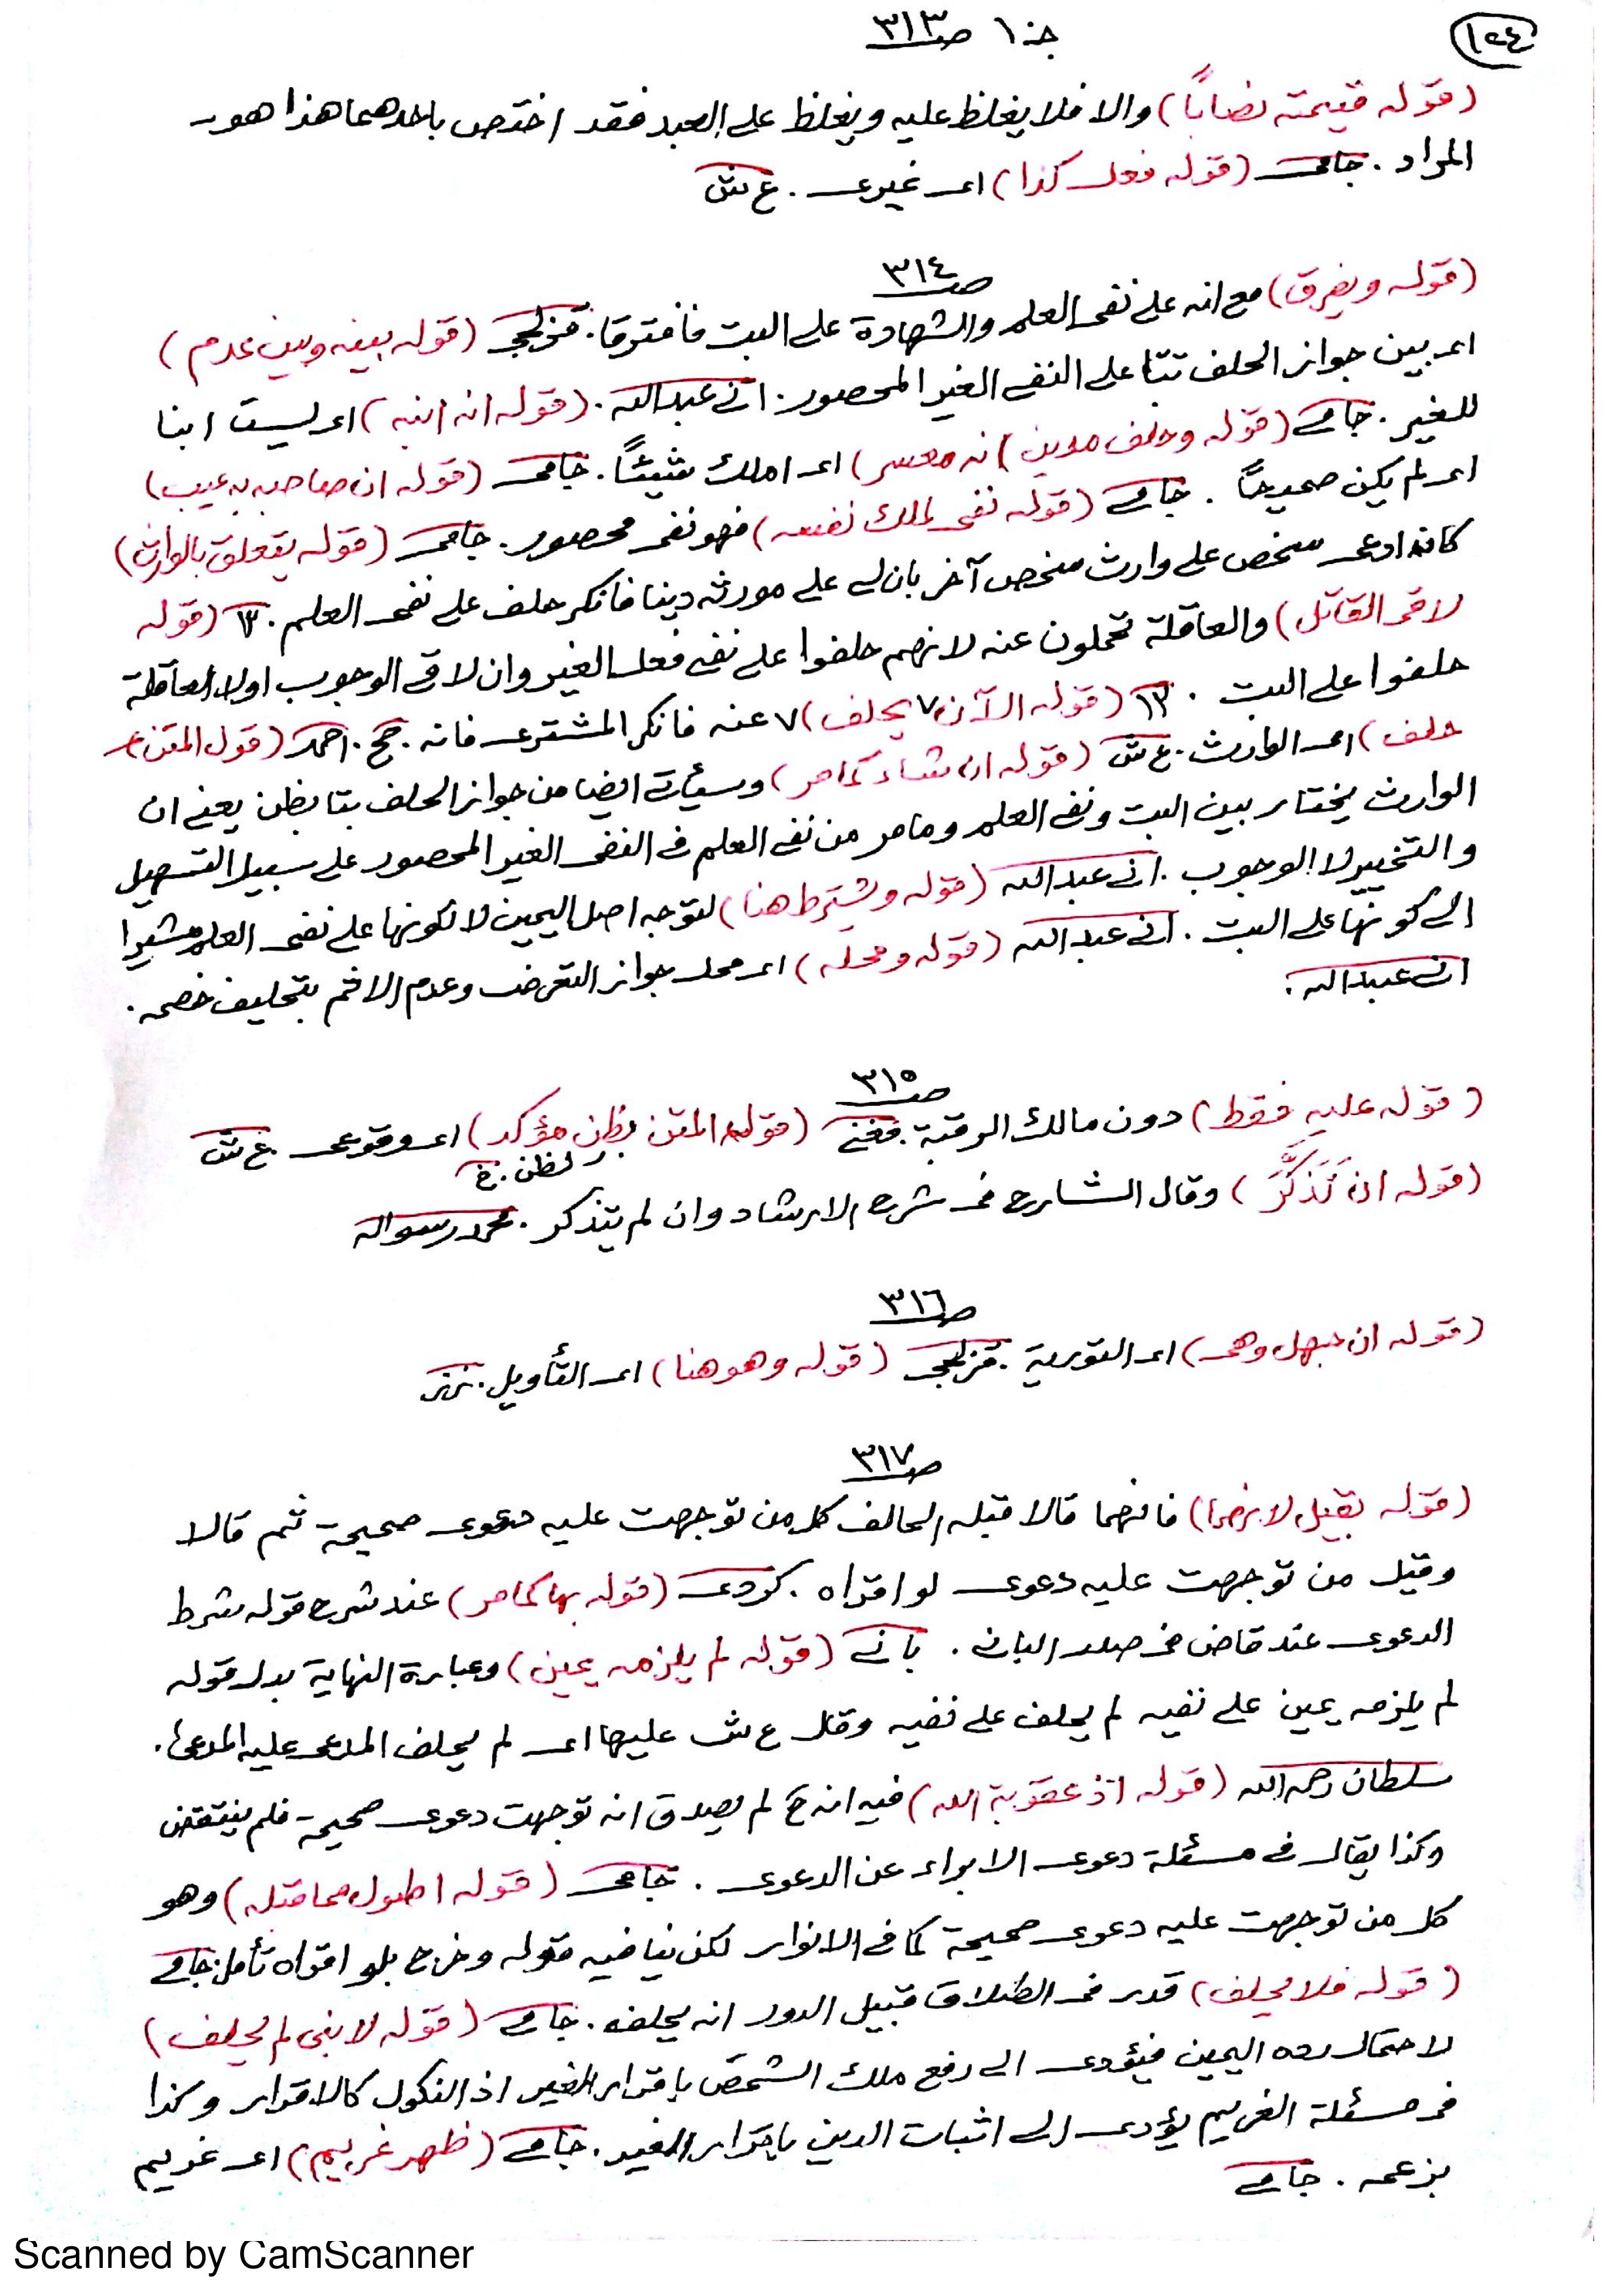 ١٥٤
جـ ١ صـ ٣١٣
(قوله قيمته نصابًا) والا فلا يغلظ عليه ويغلظ على العبد فقد اختص باحدهما هذا هو
المراد . جامى (قوله فعل كذا) اى غيرى . ع ش
صـ ٣١٤
(قوله ويفرق) مع انه على نفى العلم والشهادة على البت فافترقا . قزلجى (قوله بينه وبين عدم)
اى بين جواز الحلف بتا على النفى الغير المحصور . انى عبدالله . (قوله انه ابنه) اى ليست ابنا
للغير . جامى (قوله وحلف مدين انه معسر) اى املك شيئًا . جامى (قوله ان صاحبه به عيب)
اى لم يكن صحيحًا . جامى (قوله نفى ملك نفسه) فهو نفى محصور . جامى (قوله يتعلق بالوارث)
كانه ادعى شخص على وارث شخص آخر بان لى على مورثه دينا فانكر حلف على نفى العلم . ١٣ (قوله
لاقى القاتل) والعاقلة تحملون عنه لانهم حلفوا على نفى فعل الغير وان لاقى الوجوب اولا العاقلة
حلفوا على البت . ١٣ (قوله الآن ٧ يحلف) ٧ عنه فانكر المشترى فانه . حج . احمد (قول المتن
حلف) اى الوارث . ع ش (قوله ان شاء كما مر) وسيأتى ايضا من جواز الحلف بتا بظن يعنى ان
الوارث يختار بين البت ونفى العلم وما مر من نفى العلم فى النفى الغير المحصور على سبيل التسهيل
والتخيير لا الوجوب . انى عبدالله (قوله ويشترط هنا) لتوجه اصل اليمين لا لكونها على نفى العلم مشيرا
الى كونها على البت . انى عبدالله (قوله ومحله) اى محل جواز التعرض وعدم الاثم بتحليف خصمه .
انى عبدالله .
صـ ٣١٥
(قوله عليه فقط) دون مالك الرقبة . مغنى (قوله المتن بظن مؤكد) اى وقوى . ع ش
لظن . خ
(قوله ان تَذَكَّرَ) وقال الشارح فى شرح الارشاد وان لم يتذكر . محمد رسول الله
صـ ٣١٦
(قوله ان جهل وهى) اى التورية . قزلجى (قوله وهو هنا) اى التأويل .
صـ ٣١٧
(قوله بقيل لانهما) فانهما قالا قبله الحالف كل من توجهت عليه دعوى صحيحة ثم قالا
وقيل من توجهت عليه دعوى لو اقر اه . كردى (قوله بها كما مر) عند شرح قوله شرط
الدعوى عند قاض فى صدر الباب . بانى (قوله لم يلزمه يمين) وعبارة النهاية بدل قوله
لم يلزمه يمين على نفيه لم يحلف على نفيه وقال ع ش عليها اى لم يحلف المدعى عليه المدعى .
سلطان رحمه الله (قوله اذ عقوبة الله) فيه انه ح لم يصدق انه توجهت دعوى صحيحة فلم ينتقض
وكذا يقال فى مسئلة دعوى الابراء عن الدعوى . جامى (قوله اطول مما قبله) وهو
كل من توجهت عليه دعوى صحيحة كما فى الانوار لكن ينافيه قوله وخرج بلو اقر اه تأمل . جامى
(قوله فلا يحلف) قدر فى الطلاق قبيل الدور انه يحلفه . جامى (قوله لابنى لم يحلف)
لاحتمال رده اليمين فيؤدى الى رفع ملك الشخص باقرار الغير اذ النكول كالاقرار وكذا
فى مسئلة الغريم يؤدى الى اثبات الدين باقرار الغير . جامى (ظهر غريم) اى غريم
بزعمه . جامى
Scanned by CamScanner